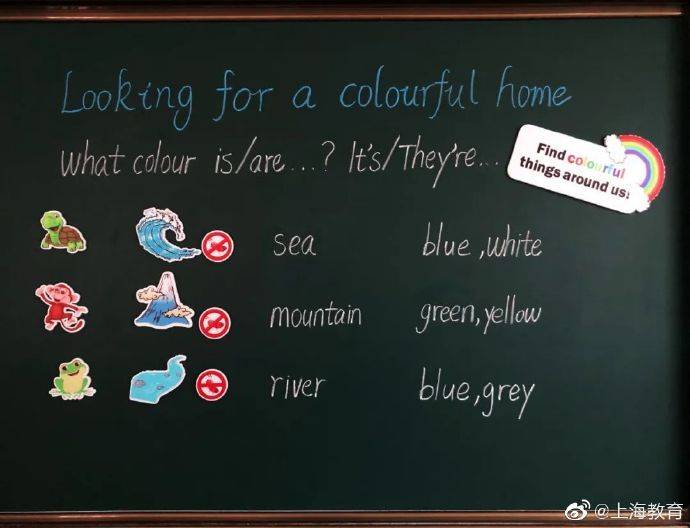 Looking for a colourful home
What colour is/are...? It's/They're...
Find colourful
things around us!
sea blue,white
mountain green,yellow
river blue,grey
@上海教育